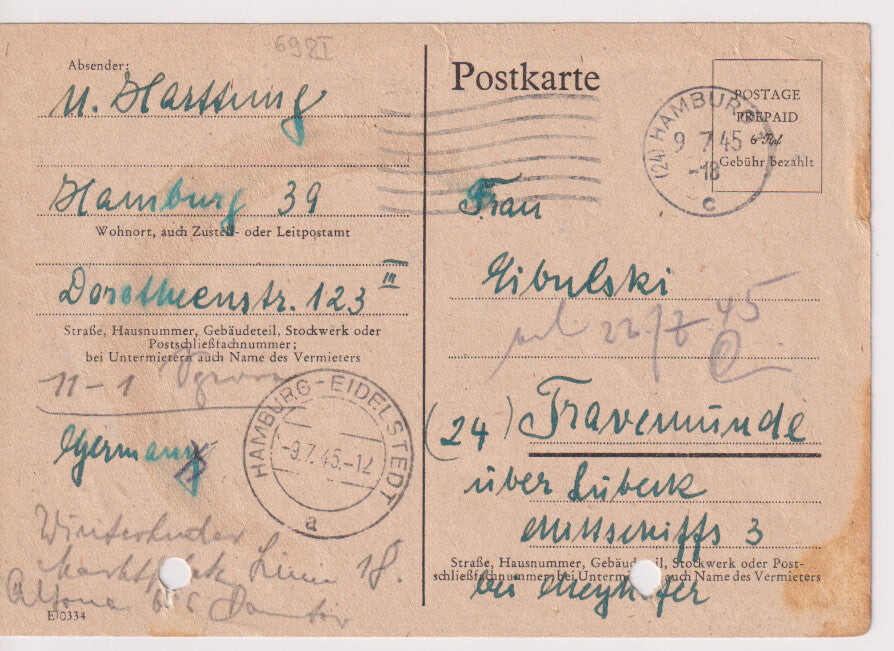 6921
Absender:
U. Harttung
Hamburg 39
Wohnort, auch Zustell- oder Leitpostamt
Dorotheenstr. 123 III
Straße, Hausnummer, Gebäudeteil, Stockwerk oder
Postschließfachnummer;
bei Untermietern auch Name des Vermieters
11-1
Germany
HAMBURG-EIDELSTEDT
-9.7.45.-12
a
Winterhuder
Marktplatz Linie 18.
Altona
E/0334
Postkarte
POSTAGE
PREPAID
6 Rpf
Gebühr bezahlt
(24) HAMBURG
9 7 45
-18
c
Frau
Cibulski
22/7.45
(24) Travemünde
über Lübeck
Mittschiffs 3
Straße, Hausnummer, Gebäudeteil, Stockwerk oder Post-
schließfachnummer; bei Untermietern auch Name des Vermieters
bei Meyhöfer